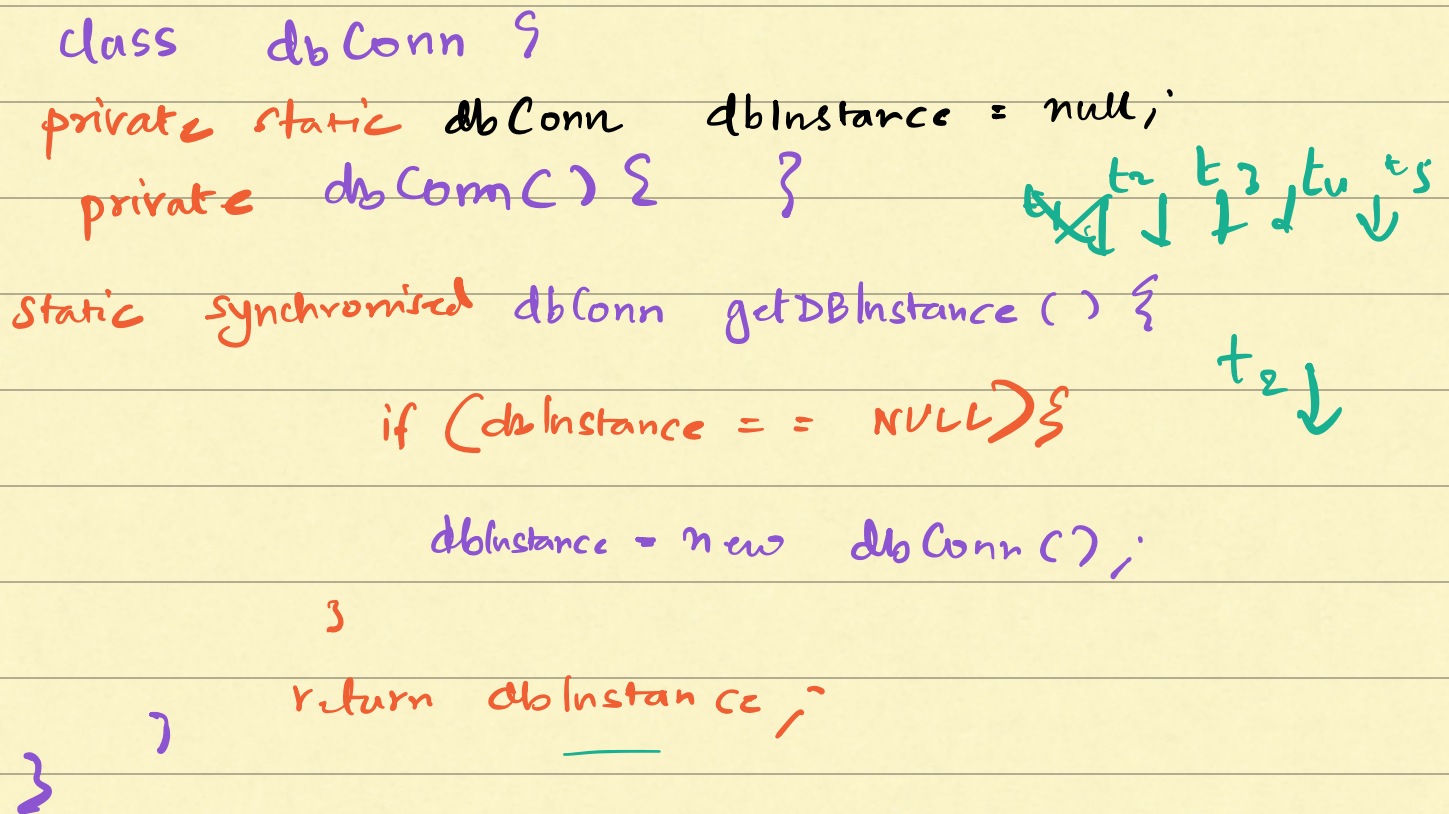 class dbConn {
private static dbConn dbInstance = null;
private dbConn() { }
t1 t2 t3 t4 t5
static synchronised dbConn getDBInstance() {
t2
if (dbInstance == NULL) {
dbInstance = new dbConn();
}
return dbInstance;
}
}